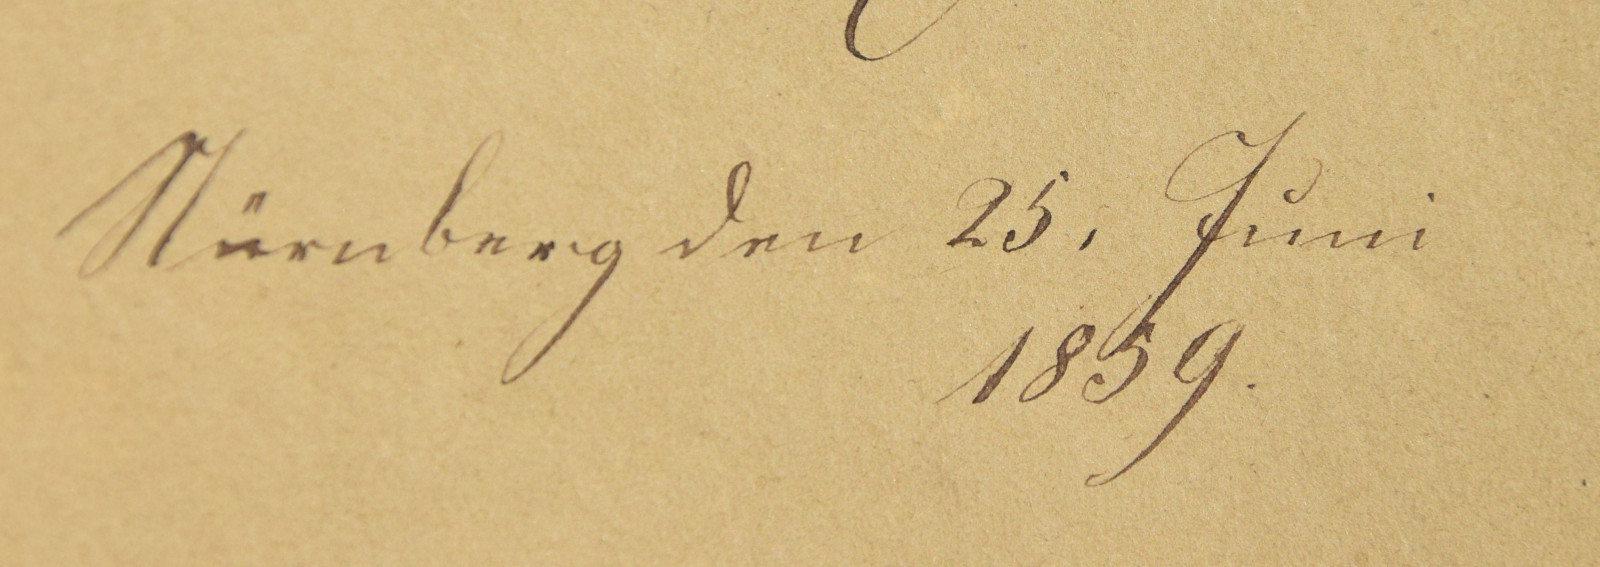 Nürnberg den 25. Juni
1859.